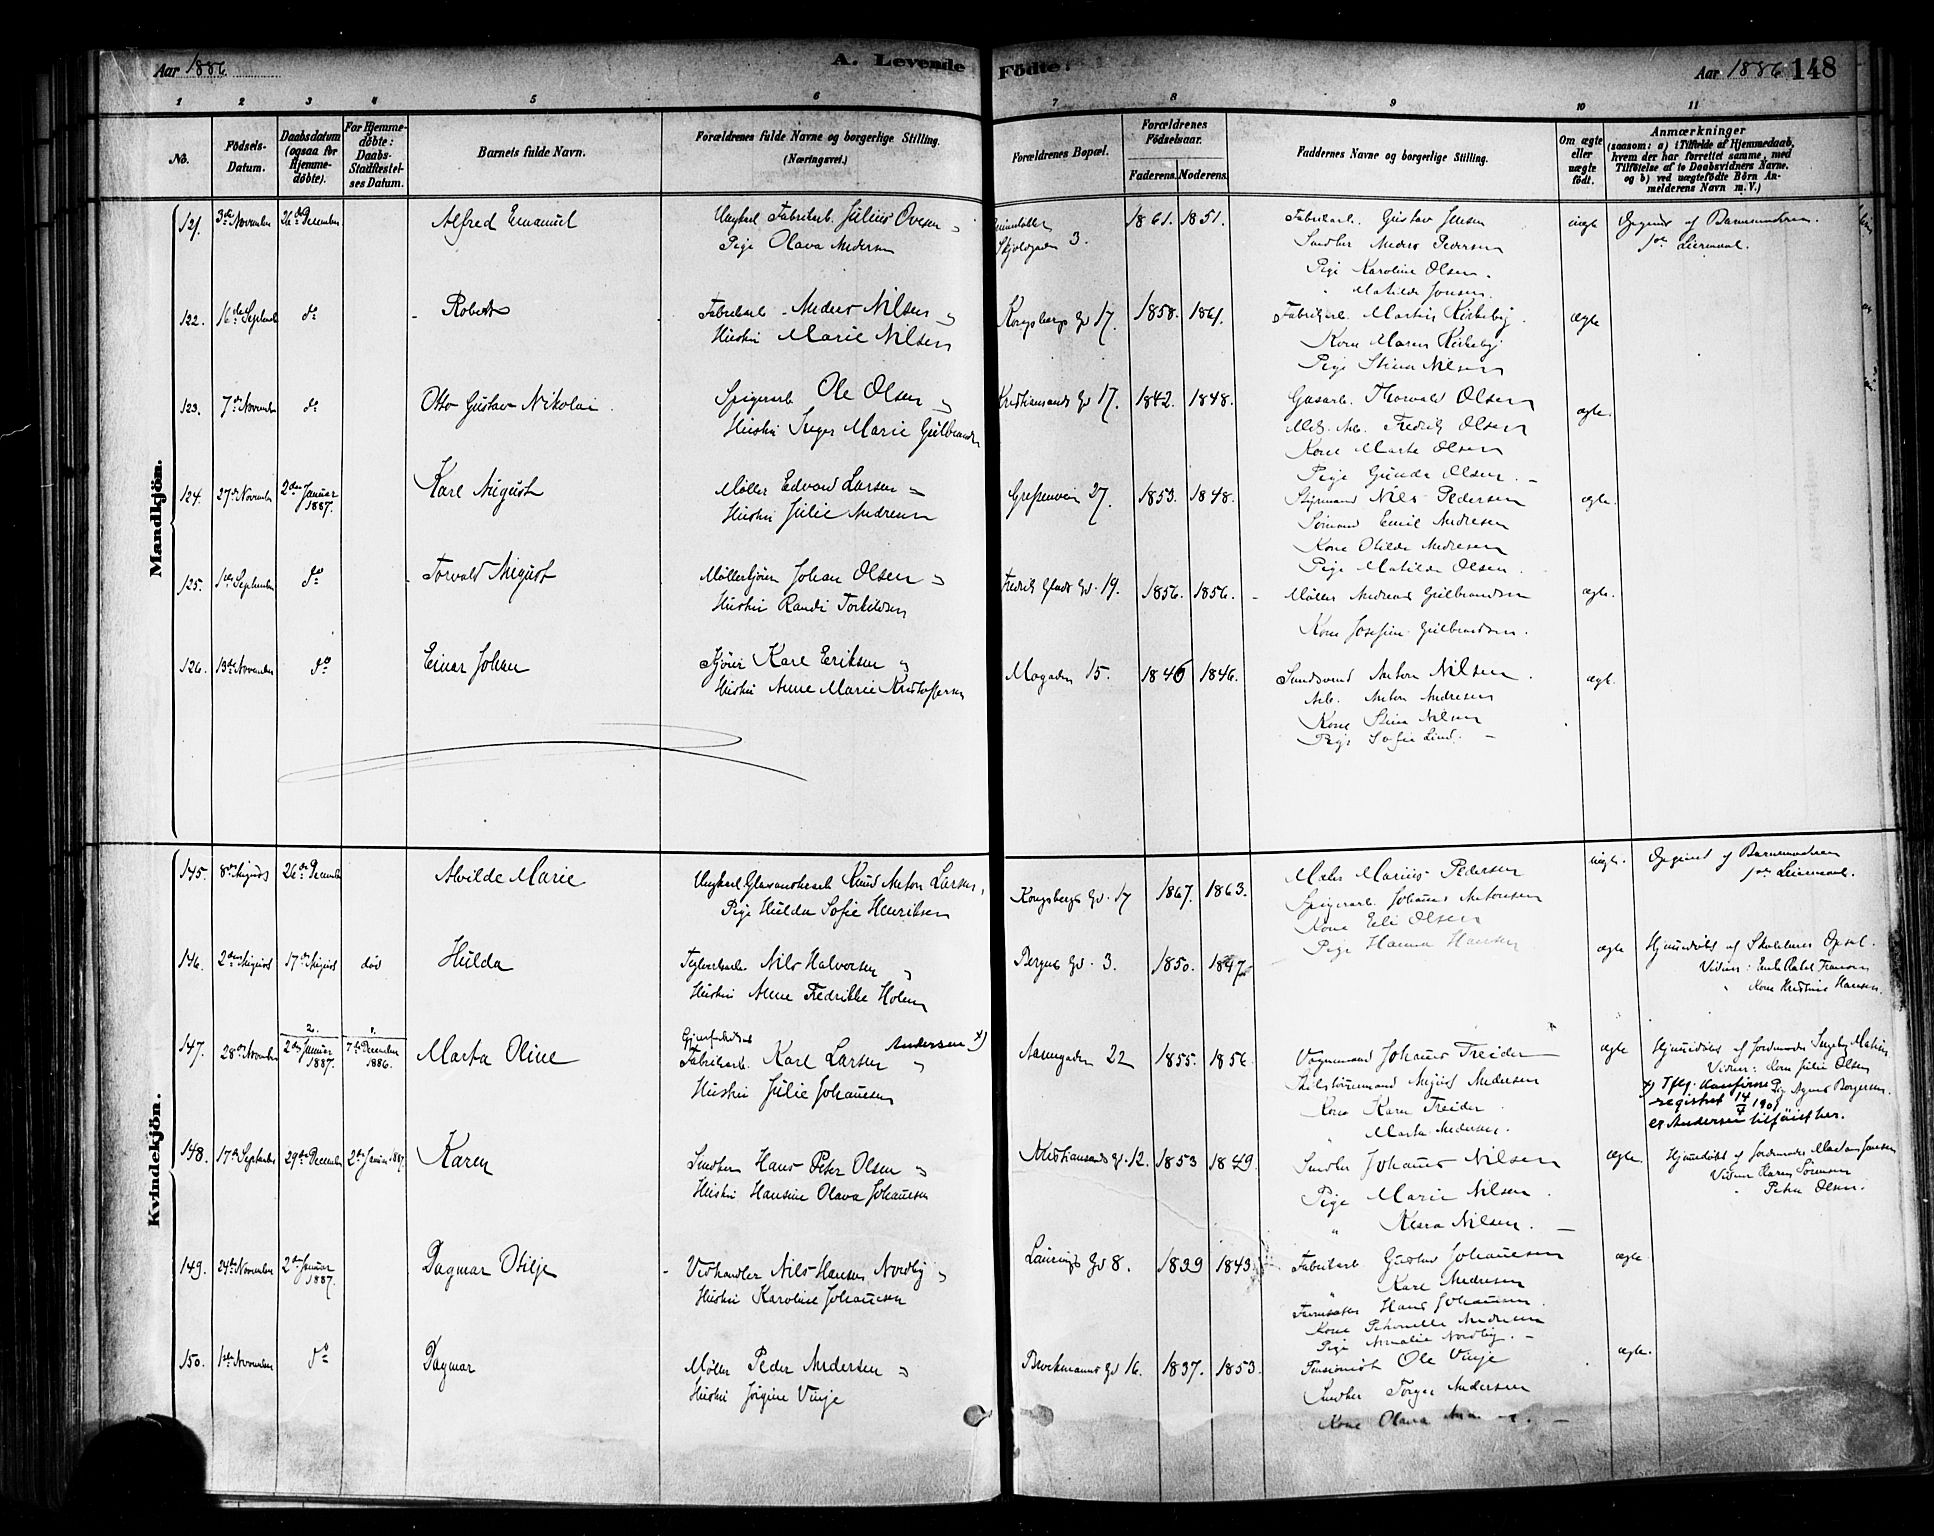 Aar 1886
A. Levende
Födte.
Aar 1886 148
1 2 3 4 5 6 7 8 9 10 11
No.
Födsels-
Datum.
Daabsdatum
(ogsaa for
Hjemme-
döbte).
For Hjemme-
döbte:
Daabs-
Stadfæstel-
ses Datum.
Barnets fulde Navn.
Forældrenes fulde Navne og borgerlige Stilling.
(Næringsvei.)
Forældrenes Bopæl.
Forældrenes
Födselsaar.
Faderens. Moderens.
Faddernes Navne og borgerlige Stilling.
Om ægte
eller
uægte
födt.
Anmærkninger
(saasom: a) i Tilfælde af Hjemmedaab,
hvem der har forrettet samme, med
Tilföielse af to Daabsvidners Navne.
og b) ved uægtefödte Börn An-
melderens Navn m. V.)
Mandkjön.
121. 3die November 26de December Alfred Emanuel Ungkarl Fabrikarb. Julius Ovesen
Pige Olava Andersen
Skjoldgaden 3. 1861. 1851.
Fabrikarb. Gustav Jensen
Snedker Anders Pedersen
Pige Karoline Olsen.
" Matilde Jonsen.
uægte Opgivet af Barnemoderen
122. 16de Septemb do Robert Fabrikarb. Anders Nilsen
Hustru Marie Nilsen
Kongsbergs Gd 17. 1858. 1861.
Fabrikarb. Martin Kirkeby.
Kone Maren Kirkeby
Pige Stina Nilsen
ægte
123. 7de November do Otto Gustav Nikolai. Spigerarb. Ole Olsen
Hustru Inger Marie Gulbrandsen
Kristiansands Gd 17. 1842. 1848.
Gasarb. Thorvald Olsen
Fredrik Olsen
Kone Marte Olsen
Pige Gunda Olsen.
ægte.
124. 27de November 2den Januar
1887. Karl August Møller Edvard Larsen
Hustru Julie Andresen
Grefsenvein 27. 1853. 1848.
Styrmand Nils Pedersen
Sømand Emil Andresen
Kone Otilde Andresen
Pige Matilde Olsen.
ægte.
125. 1ste September do Torvald August Møllerkjører Johan Olsen
Hustru Randi Torkildsen
Fredrik Glads Gd. 19. 1856. 1856.
Møller Andreas Gulbrandsen
Kone Josefine Gulbrandsen.
ægte.
126. 13de November do Einar Johan Kjører Karl Eriksen
Hustru Anne Marie Kristoffersen
Mogaden 15. 1846 1846.
Anton Nilsen.
Arb. Anton Andresen
Kone Stina Nilsen
Pige Sofie Lind.
ægt.
Kvindekjön.
145. 8de August 26de December Alvilde Marie Ungkarl Glasmesterarb Knud Anton Larsen,
Pige Hulda Sofie Henriksen
Kongsbergs Gd. 17 1867. 1863.
Maler Marius Pedersen
Spigerarb. Johannes Antonsen
Kone Eli Olsen
Pige Hanna Hansen
uægte. Opgivet af Barnemoderen
146. 2den August 17de August død Hulda Teglverksarb. Nils Halvorsen
Hustru Anne Fredrikke Holm
Bergens Gd. 3. 1850. 1847.
ægte Hjemmedøbt af
Kone Kristine Hansen.
147. 28de November 2.
2den Januar
1887. 1.
7de December
1886. Marta Oline
Fabrikarb. Karl Larsen Andersen x)
Hustru Julie Johansen
22 1855. 1856
Vognmand Johannes Treider
August Andersen
Kone Karen Treider.
" Marta Andersen.
ægte Hjemmedøbt af Jordmoder Ingeborg
Vidner: Kone Julie Olsen
Pige Agnes Borgersen.
x) Iflg. konfirm.
registret 14/4 1901
er Andersen tilføiet her.
148. 17de September 29de December 2den Januar 1887. Karen Snedker Hans Peter Olsen
Hustru Hansine Olava Johansen
Kristiansands Gd. 12. 1853 1849.
Snedker Johannes Nilsen
Pige Marie Nilsen.
" Klara Nilsen.
ægte Hjemmedøbt af Jordmoder Jensen
Vidner Karen Sørensen
" Petra Olsen.
149. 24de November 2den Januar
1887. Dagmar Otilje Vedhandler Nils Hansen Nordby
Hustru Karoline Johannesen
Laurings Gd 8. 1839 1843.
Fabrikarb Gustav Johannesen
" Karl Andresen
Hans Johannesen.
Kone Petronelle Andresen
Pige Amalie Nordby.
ægte.
150. 1ste November do Dagmar Møller Peder Andersen
Hustru Jørgine Vinje
Brockmanns Gd 16. 1837. 1853.
Pensionist Ole Vinje
Snedker Torger Andersen
Kone Olava
ægte.